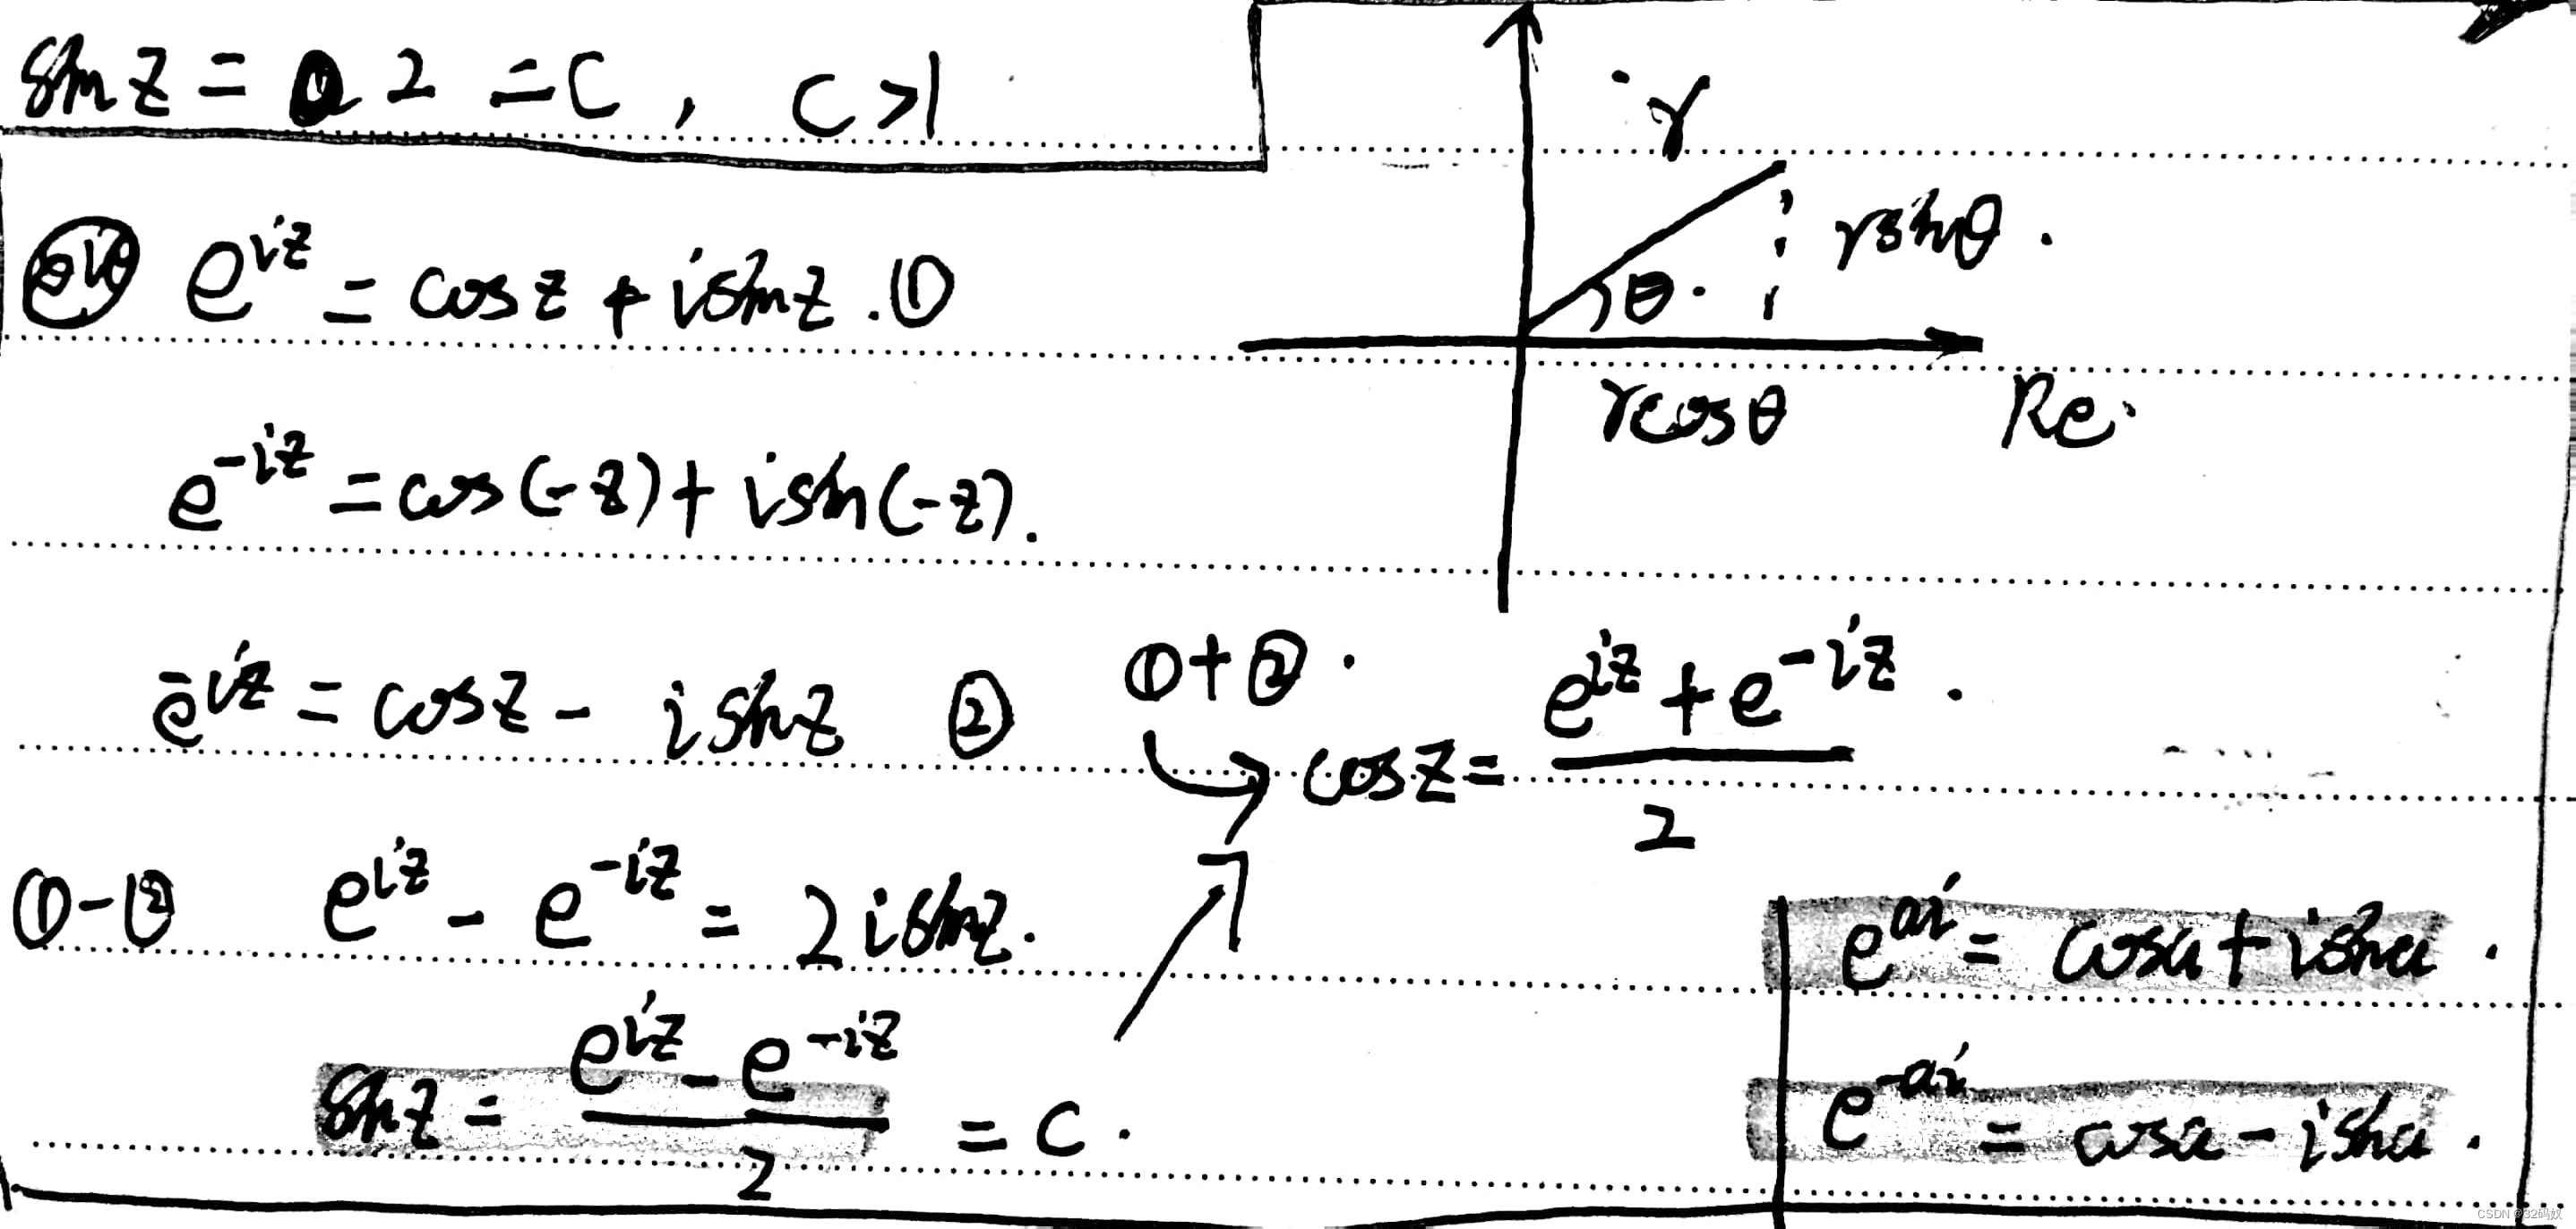 sin z = 2 = C , C > 1
r
r sinθ .
θ .
r cosθ
Re .
e^{iθ} e^{iz} = cos z + i sin z . ①
e^{-iz} = cos(-z) + i sin(-z) .
e^{-iz} = cos z - i sin z ②
① + ② .
→ cos z = \frac{e^{iz} + e^{-iz}}{2} .
① - ② e^{iz} - e^{-iz} = 2 i sin z .
sin z = \frac{e^{iz} - e^{-iz}}{2} = C .
e^{ai} = cos a + i sin a .
e^{-ai} = cos a - i sin a .
CSDN @32码奴